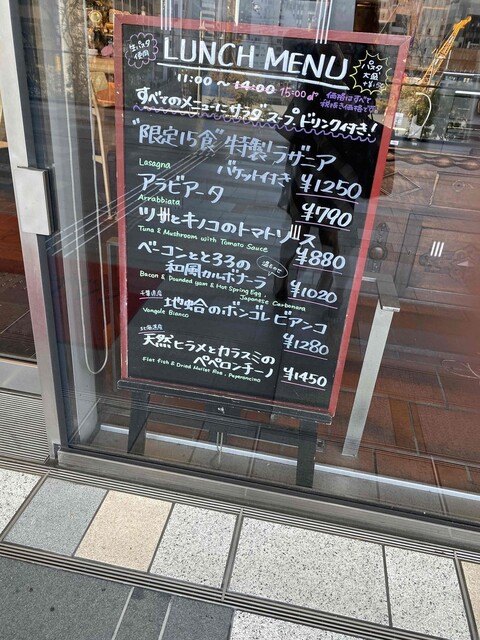 生パスタ
使用
LUNCH MENU
パスタ
大盛
11:00 ~ 14:00
15:00
価格はすべて
税抜き価格です
すべてのメニューにサラダ スープ ドリンク付き!
"限定15食" 特製ラザニア
Lasagna
バケット付き ¥1250
アラビアータ
Arrabbiata
¥790
ツナとキノコのトマトソース
Tuna & Mushroom with Tomato Sauce
¥880
ベーコンととろろの
温玉のせ
和風カルボナーラ
¥1020
Bacon & Pounded yam & Hot Spring Egg,
Japanese Carbonara
千葉県産
地蛤のボンゴレビアンコ
Vongole Bianco
¥1280
北海道産
天然ヒラメとカラスミの
ペペロンチーノ
Flat fish & Dried Mullet Roe, Peperoncino
¥1450